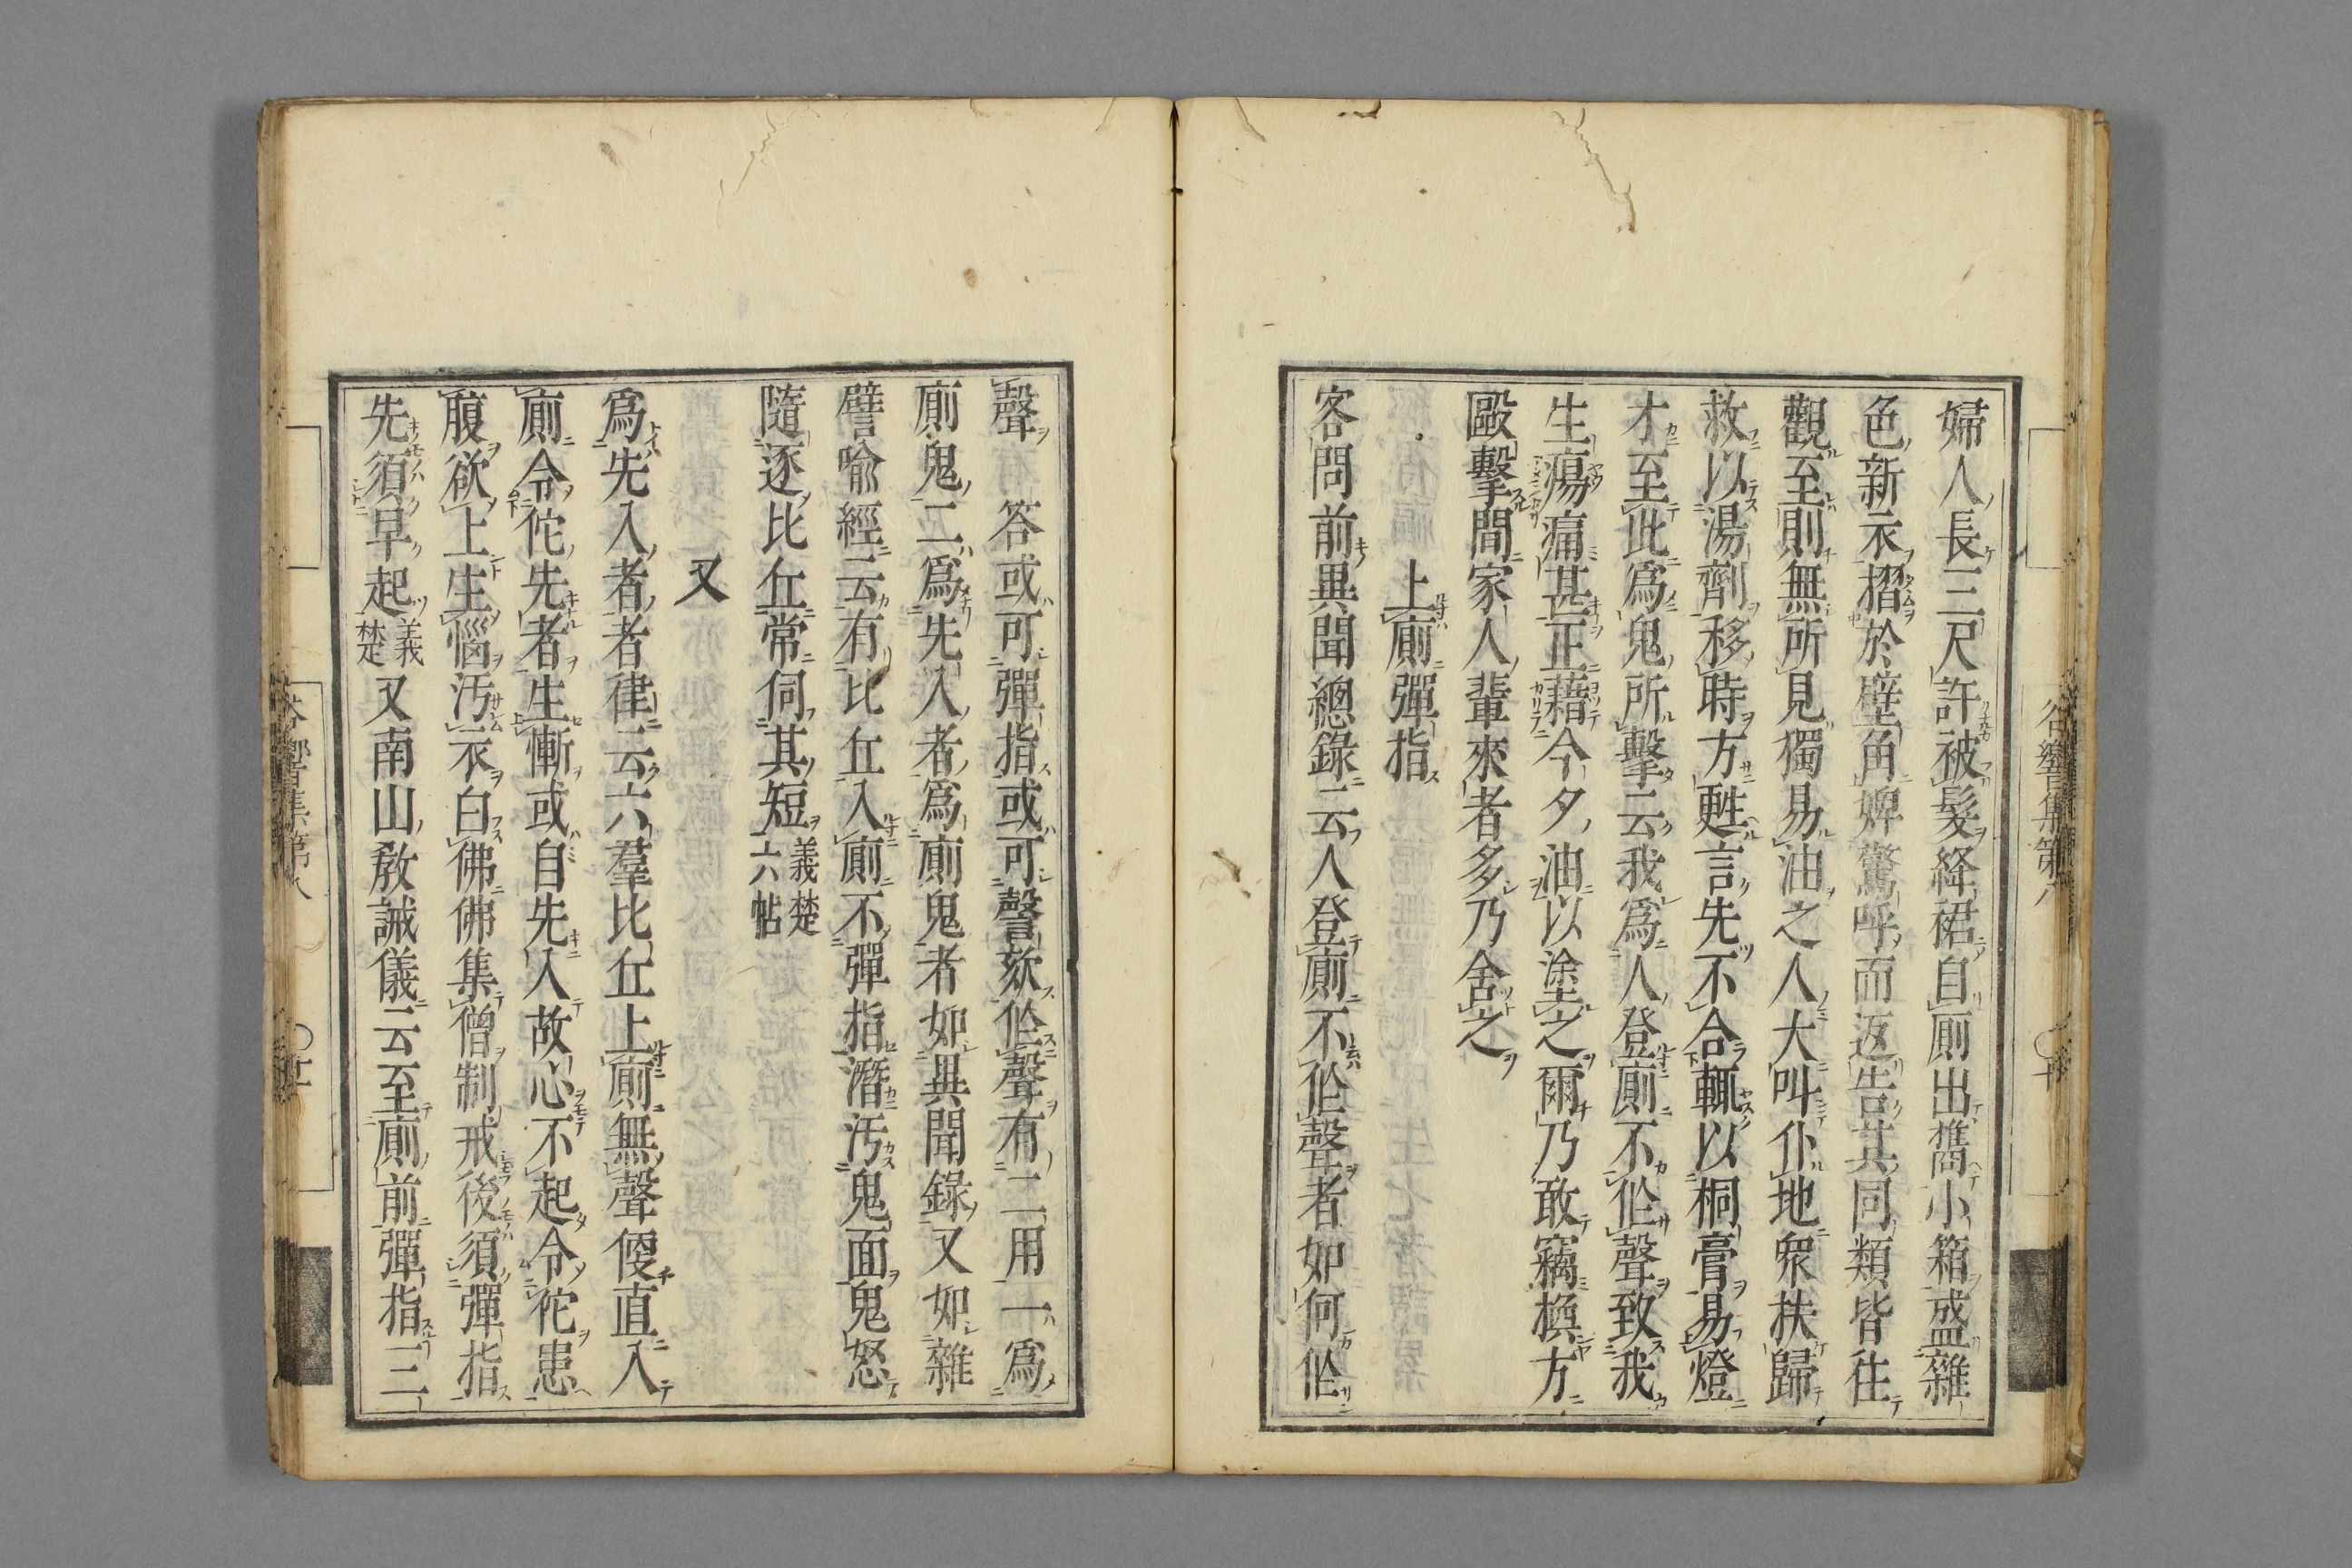 婦人長三尺許被髮絳裙自廁出攜小箱盛雜
色新衣摺於壁角婢驚呼而返告其同類皆往
觀至則無所見獨易油之人大叫仆地眾扶歸
救以湯劑移時方甦言先不合輒以桐膏易燈
才至此為鬼所擊云我為人登廁不伀聲致我
生瘍痛甚正藉今夕油以塗之爾乃敢竊換方
毆擊間家人輩來者多乃舍之
上廁彈指
客問前異聞總錄云人登廁不伀聲者如何伀
聲答或可彈指或可謦欬伀聲有二用一為
廁鬼二為先入者為廁鬼者如異聞錄又如雜
譬喻經云有比丘入廁不彈指濳汚鬼面鬼怒
隨逐比丘常伺其短義楚六帖
又
為先入者者律云六羣比丘上廁無聲便直入
廁令佗先者生慚或自先入故心不起令佗患
腹欲上生惱汚衣白佛佛集僧制戒後須彈指
先須早起義楚又南山教誡儀云至廁前彈指三
谷響集第八
谷響集第八 〇廿一